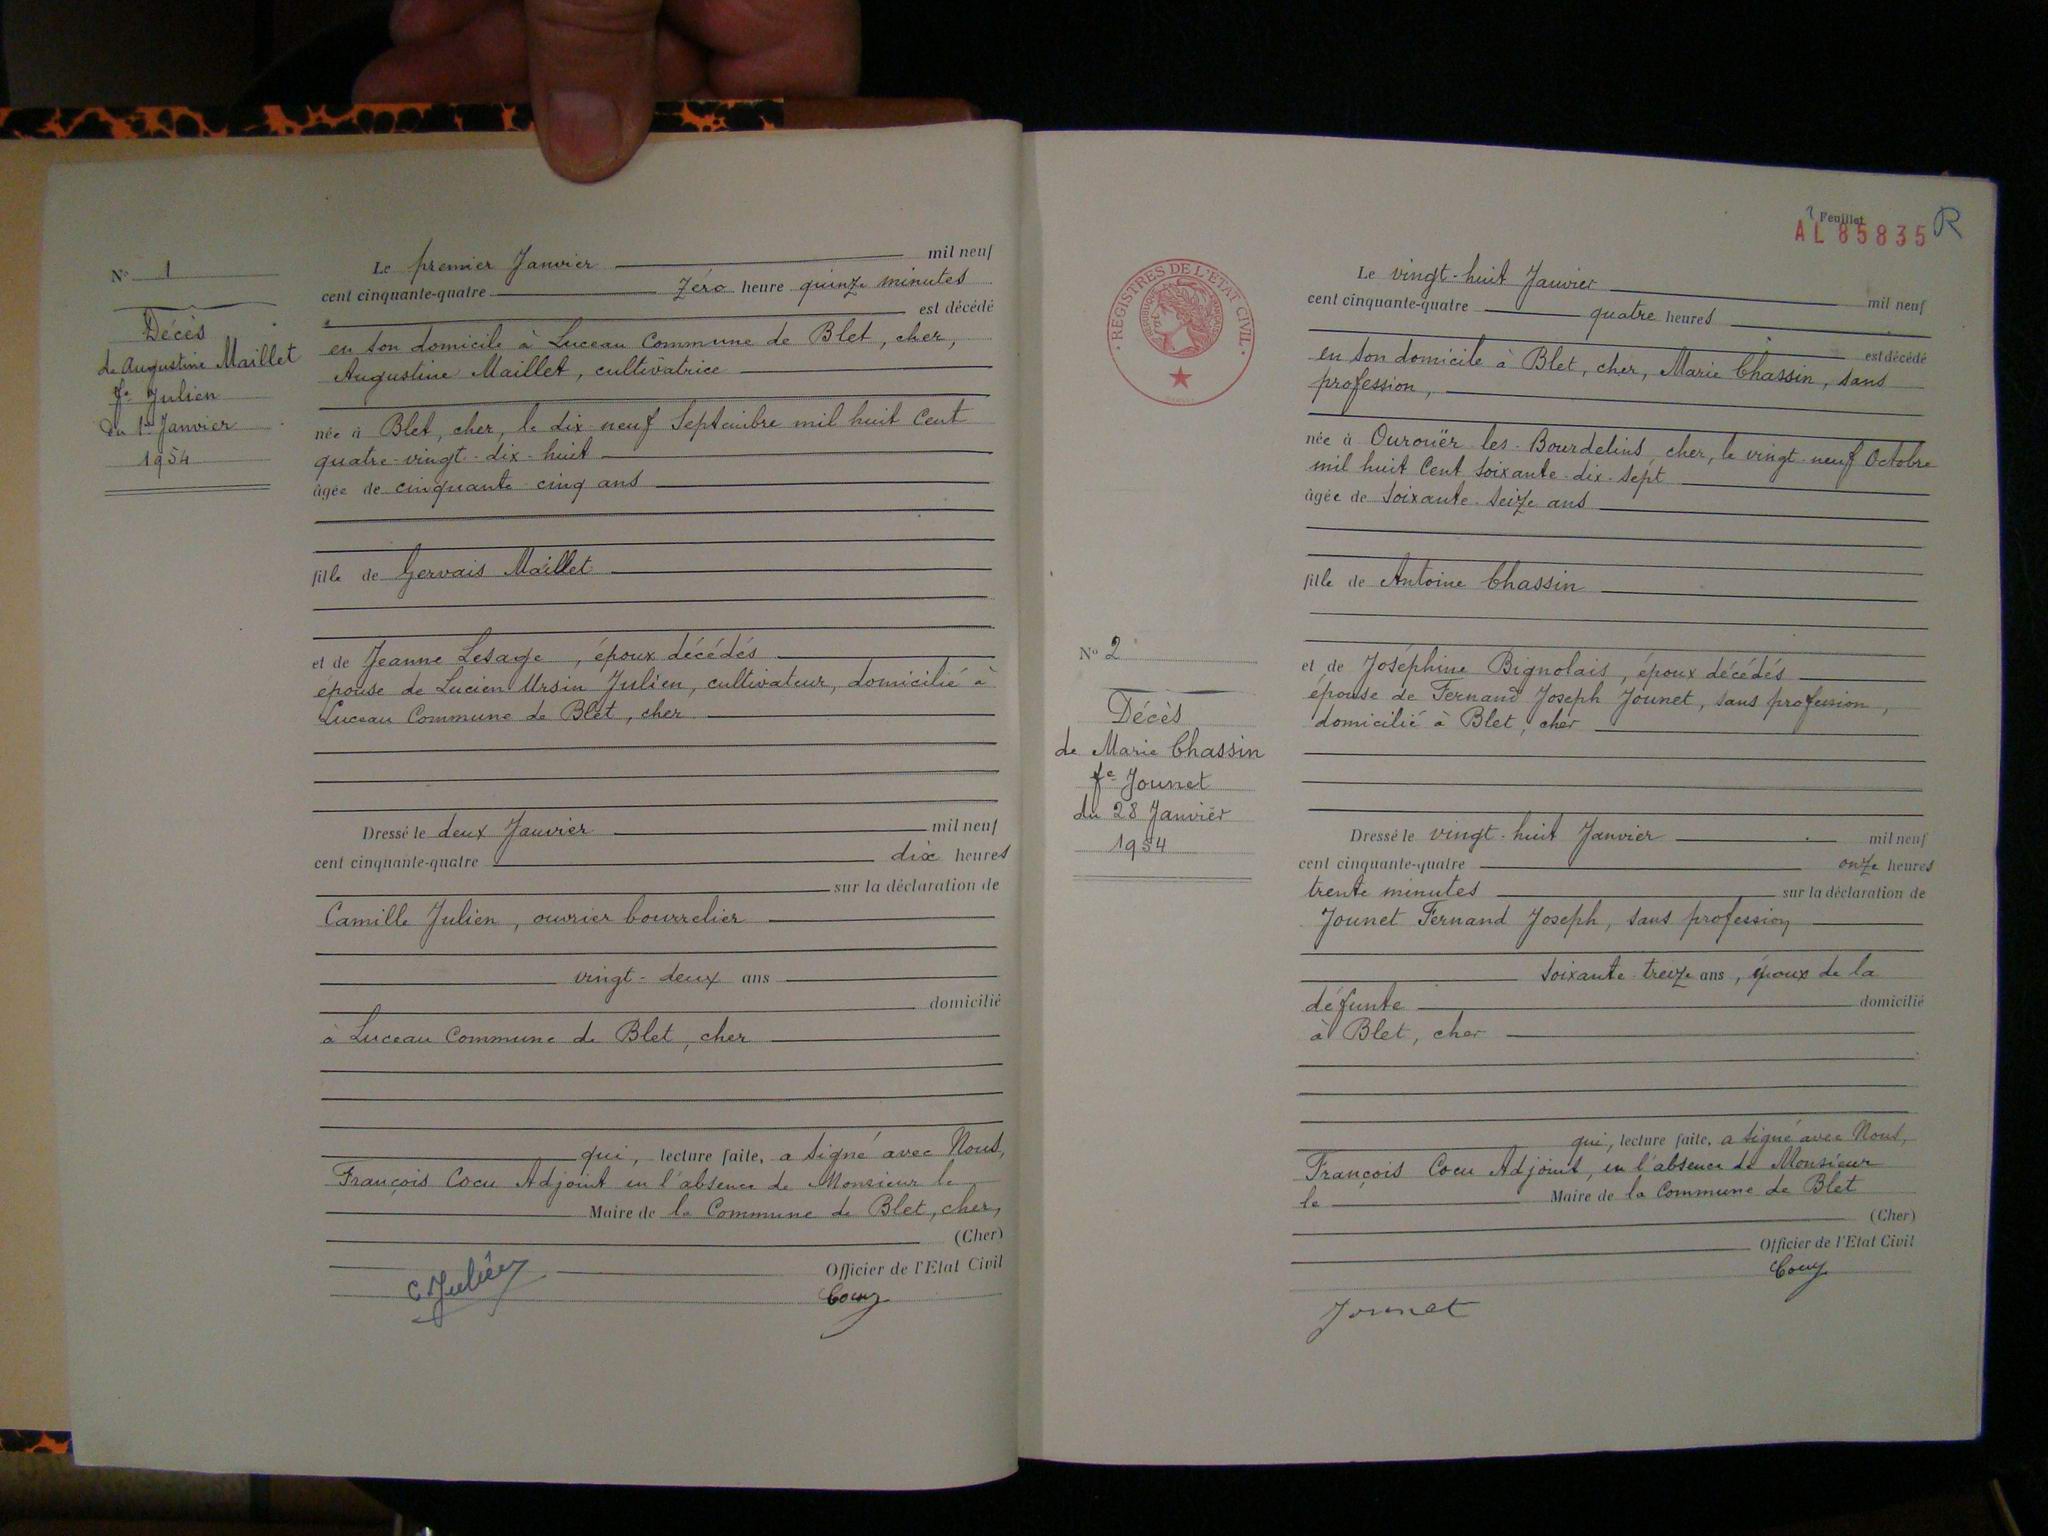 N° 1
Décès
de Augustine Maillet
fe Julien
du 1er Janvier
1954
Le premier Janvier mil neuf
cent cinquante-quatre zéro heure quinze minutes
est décédé
en son domicile à Luceau Commune de Blet, cher,
Augustine Maillet, cultivatrice
née à Blet, cher, le dix neuf Septembre mil huit Cent
quatre-vingt-dix-huit
âgée de cinquante cinq ans
fille de Gervais Maillet
et de Jeanne Lesage, époux décédés
épouse de Lucien Ursin Julien, cultivateur, domicilié à
Luceau Commune de Blet, cher
Dressé le deux Janvier mil neuf
cent cinquante-quatre dix heures
sur la déclaration de
Camille Julien, ouvrier bourrelier
vingt-deux ans
domicilié
à Luceau Commune de Blet, cher
qui, lecture faite, a signé avec Nous,
François Cocu Adjoint en l'absence de Monsieur le
Maire de la Commune de Blet, cher,
(Cher)
Officier de l'Etat Civil
C. Julien
Feuillet
AL 85835 R
REGISTRES DE L'ETAT CIVIL
N° 2
Décès
de Marie Chassin
fe Jounet
du 28 Janvier
1954
Le vingt-huit Janvier mil neuf
cent cinquante-quatre quatre heures
est décédé
en son domicile à Blet, cher, Marie Chassin, sans
profession,
née à Ourouër les-Bourdelins, cher, le vingt-neuf Octobre
mil huit Cent soixante-dix-sept
âgée de soixante-seize ans
fille de Antoine Chassin
et de Joséphine Bignolais, époux décédés
épouse de Fernand Joseph Jounet, sans profession,
domicilié à Blet, cher
Dressé le vingt-huit Janvier mil neuf
cent cinquante-quatre onze heures
trente minutes sur la déclaration de
Jounet Fernand Joseph, sans profession
soixante-treize ans, époux de la
défunte domicilié
à Blet, cher
qui, lecture faite, a signé avec Nous,
François Cocu Adjoint, en l'absence de Monsieur
le Maire de la Commune de Blet
(Cher)
Officier de l'Etat Civil
Jounet